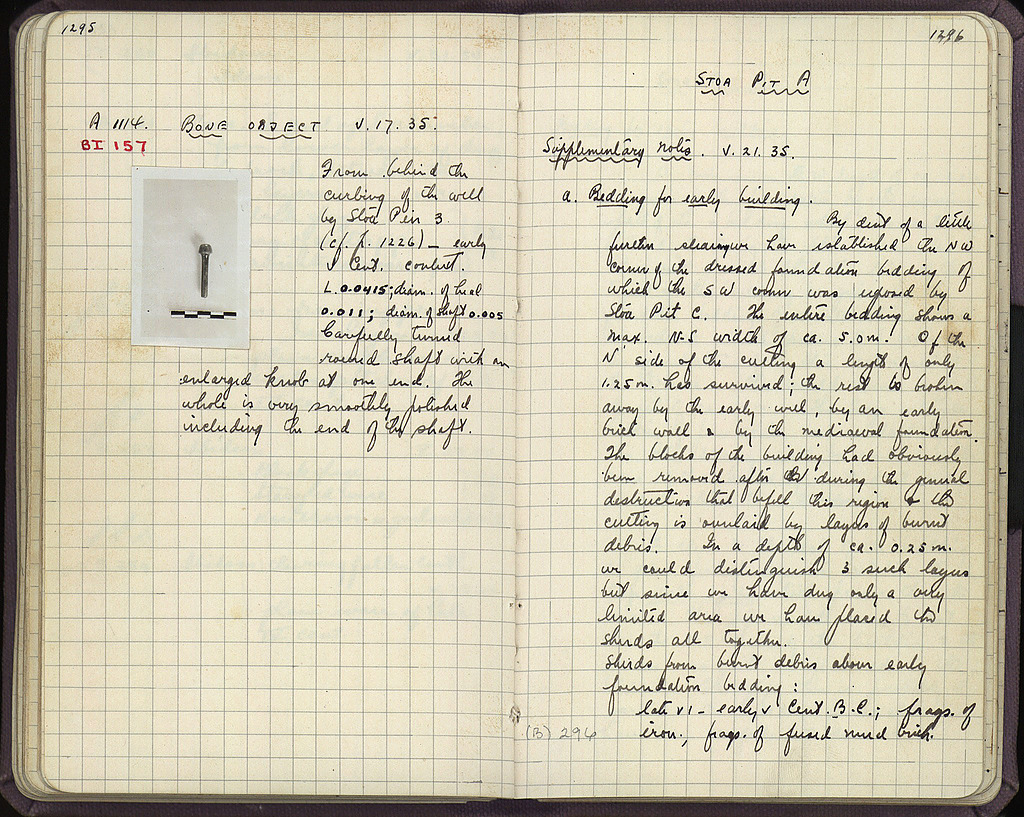 1295
A 1114. BONE OBJECT V.17.35.
BI 157
From behind the
curbing of the well
by Stoa Pier 3
(cf. p. 1226) – early
V Cent. context.
L. 0.0415; diam. of head
0.011; diam. of shaft 0.005
Carefully turned
round shaft with an
enlarged knob at one end. The
whole is very smoothly polished
including the end of the shaft.
1296
STOA PIT A
Supplementary notes. V.21.35.
a. Bedding for early building.
By dint of a little
further clearing we have established the NW
corner of the dressed foundation bedding of
which the SW corner was exposed by
Stoa Pit C. The entire bedding shows a
max. N-S width of ca. 5.0 m. Of the
N side of the cutting a length of only
1.25 m. has survived; the rest is broken
away by the early well, by an early
brick wall & by the mediaeval foundation.
The blocks of the building had obviously
been removed after or during the general
destruction that befell this region & the
cutting is overlaid by layers of burnt
debris. In a depth of ca. 0.25 m.
we could distinguish 3 such layers
but since we have dug only a very
limited area we have placed the
sherds all together.
Sherds from burnt debris above early
foundation bedding:
late VI – early V Cent. B.C.; frags. of
iron; frags. of fused mud brick.
(B) 296